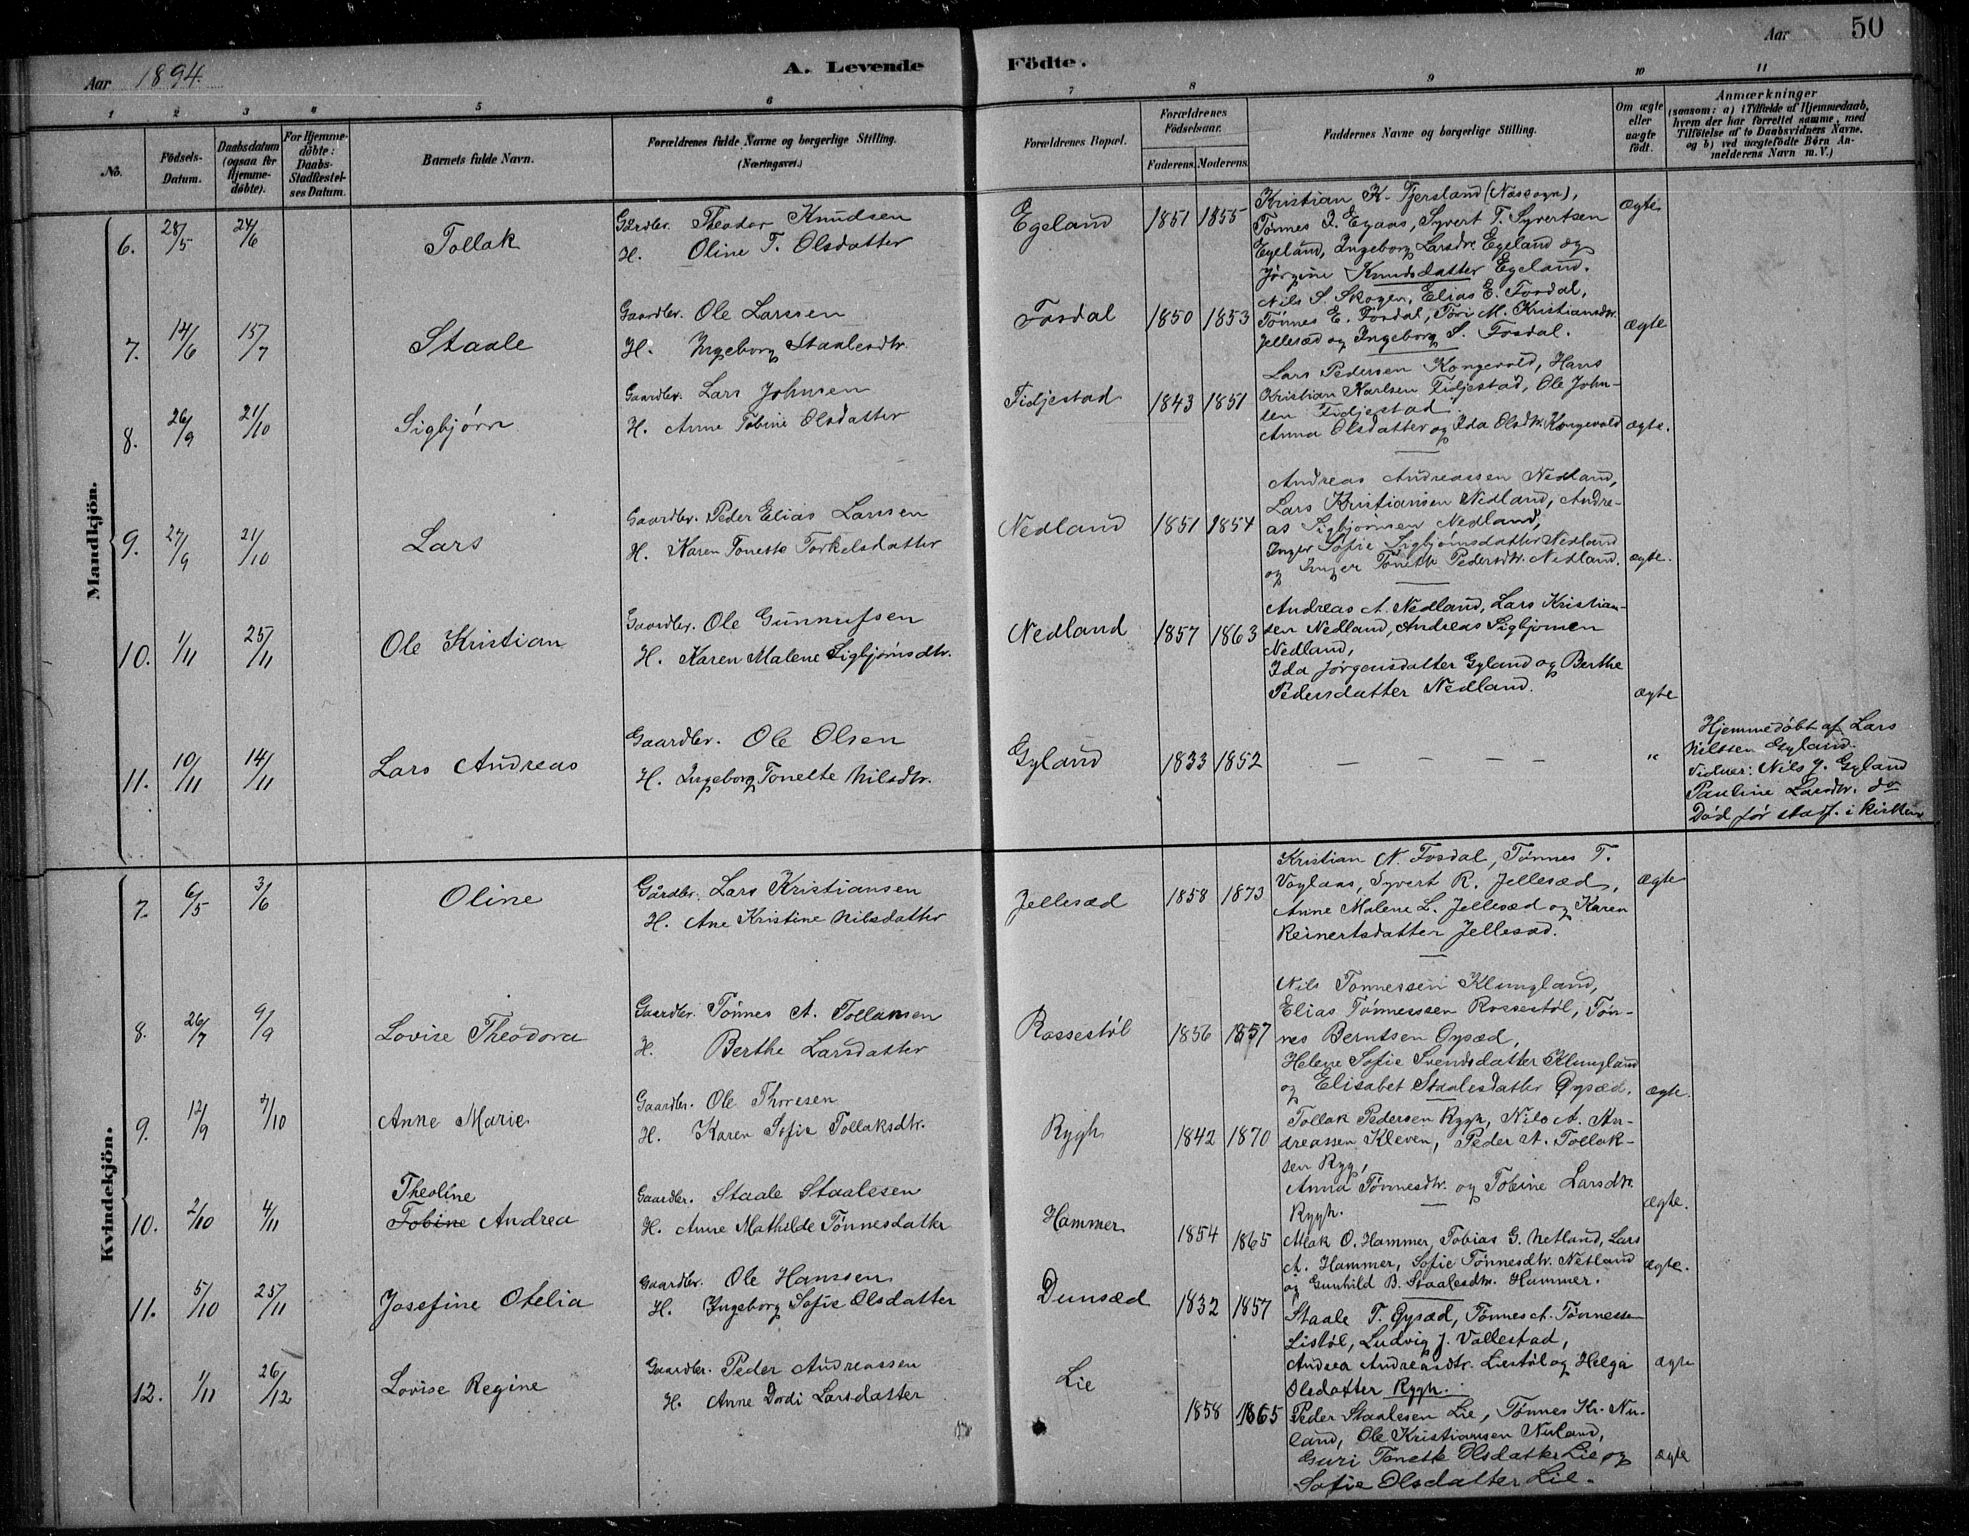 Aar 1894. A. Levende Födte. Aar 50
1 2 3 4 5 6 7 8 9 10 11
No. Födsels-Datum. Daabsdatum (ogsaa for Hjemmedöbte). For Hjemmedöbte: Daabs-Stadfestelses Datum. Barnets fulde Navn. Forældrenes fulde Navne og borgerlige Stilling. (Næringsvei.) Forældrenes Bopæl. Forældrenes Födselsaar. Faderens. Moderens. Faddernes Navne og borgerlige Stilling. Om ægte eller uægte födt. Anmærkninger (saasom: a) i Tilfælde af Hjemmedaab, hvem der har forrettet samme, med Tilföielse af to Daabsvidners Navne. og b) ved uægtefödte Børn Anmelderens Navn m. V.)
Mandkjön.
6. 28/5 24/6 Tollak Gårdbr. Theodor Knudsen
H. Oline T. Olsdatter
Egeland 1851 1855 Kristian K. Tjersland (Næssogn),
Tønnes I. Egaas, Syvert T. Syvertsen
Egeland, Ingeborg Larsdtr. Egeland og
Jørgine Knudsdatter Egeland.
ægte
7. 14/6 15/7 Staale Gaardbr. Ole Larssen
H. Ingeborg Staalesdtr.
Fosdal 1850 1853 Nils S. Skogen, Elias E. Fosdal,
Tønnes E. Fosdal, Tori M. Kristiansdtr.
Jellesæd og Ingeborg S. Fosdal.
ægte
8. 26/9 21/10 Sigbjørn Gaardbr. Lars Johnsen
H. Anne Tobine Olsdatter
Fidjestad 1843 1851 Lars Pedersen Kongevold, Hans
Kristian Karlsen Fidjestad, Ole John-
sen Fidjestad
Anna Olsdatter og Ida Olsdtr. Kongevold
ægte.
9. 27/9 21/10 Lars Gaardbr. Peder Elias Larssen
H. Karen Tonette Torkelsdatter
Nedland 1851 1854 Andreas Andreassen Nedland,
Lars Kristiansen Nedland, Andre-
as Sigbjørnsen Nedland,
Inger Sofie Sigbjørnsdatter Nedland
og Inger Tonette Pedersdtr. Nedland.
ægte.
10. 1/11 25/11 Ole Kristian Gaardbr. Ole Gunnufsen
H. Karen Malene Sigbjørnsdtr.
Nedland 1857 1863 Andreas A. Nedland, Lars Kristian-
sen Nedland, Andreas Sigbjørnsen
Nedland,
Ida Jørgensdatter Gyland og Berthe
Pedersdatter Nedland.
ægte
11. 10/11 14/11 Lars Andreas Gaardbr. Ole Olsen
H. Ingeborg Tonette Nilsdtr.
Gyland 1833 1852 — — — — — "
Hjemmedøbt af Lars
Nilssen Gyland.
Vidner: Nils J. Gyland
Pauline Larsdtr. do
Død før stadf. i kirken
Kvindekjön.
7. 6/5 3/6 Oline Gårdbr. Lars Kristiansen
H. Ane Kristine Nilsdatter
Jellesæd 1858 1873 Kristian N. Fosdal, Tønnes T.
Voglaas, Syvert R. Jellesæd,
Anne Malene L. Jellesæd og Karen
Reinertsdatter Jellesæd.
ægte
8. 26/7 9/9 Lovise Theodora Gaardbr. Tønnes A. Tollaksen
H. Berthe Larsdatter
Rossestøl 1856 1857 Nils Tønnessen Klungland,
Elias Tønnessen Rossestøl, Tøn-
nes Berntsen Øysæd,
Helene Sofie Svendsdatter Klungland
og Elisabet Staalesdatter Øysæd.
ægte.
9. 12/9 7/10 Anne Marie Gaardbr. Ole Thoresen
H. Karen Sofie Tollaksdtr.
Rygh 1842 1870 Tollak Pedersen Rygh, Nils A. An-
dreassen Kleven, Peder A. Tollak-
sen Ryg,
Anna Tønnesdtr. og Tobine Larsdtr.
Rygh.
ægte.
10. 2/10 4/11 Theoline
Tobine Andrea Gaardbr. Staale Staalesen
H. Anne Mathilde Tønnesdatter
Hammer 1854 1865 Aslak O. Hammer, Tobias G. Netland, Lars
A. Hammer, Sofie Tønnesdtr. Netland
og Gunhild B. Staalesdtr. Hammer.
ægte.
11. 5/10 25/11 Josefine Otelia Gaardbr. Ole Hanssen
H. Ingeborg Sofie Olsdatter
Dunsæd 1832 1857 Staale T. Øysæd, Tønnes A. Tønnessen
Listøl, Ludvig J. Vallestad,
Andrea Andreasdtr. Liestøl og Helga
Olsdatter Rygh.
ægte
12. 1/11 26/12 Lovise Regine Gaardbr. Peder Andreassen
H. Anne Dordi Larsdatter
Lie 1858 1865 Peder Staalesen Lie, Tønnes Kr. Nu-
land, Ole Kristiansen Nuland,
Guri Tonette Olsdatter Lie og
Sofie Olsdatter Lie.
ægte